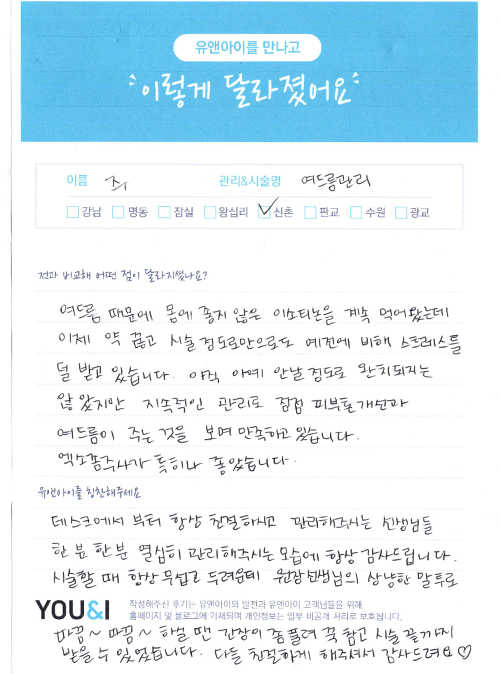 유앤아이를 만나고
이렇게 달라졌어요
이름 최 관리&시술명 여드름관리
강남 명동 잠실 왕십리 신촌 판교 수원 광교
전과 비교해 어떤 점이 달라지셨나요?
여드름 때문에 몸에 좋지 않은 이소티논을 계속 먹어왔는데
이제 약 끊고 시술 정도로만으로도 예전에 비해 스트레스를
덜 받고 있습니다. 아직 아예 안날 정도로 완치되지는
않았지만 지속적인 관리로 점점 피부톤개선과
여드름이 주는 것을 보며 만족하고 있습니다.
엑소좀주사가 특히나 좋았습니다.
유앤아이를 칭찬해주세요
데스크에서 부터 항상 친절하시고 관리해주시는 선생님들
한 분 한 분 열심히 관리해주시는 모습에 항상 감사드립니다.
시술할 때 항상 무섭고 두려운데 원장선생님의 상냥한 말투로
YOU&I 작성해주신 후기는 유앤아이의 발전과 유앤아이 고객님들을 위해
홈페이지 및 블로그에 기재되며 개인정보는 일부 비공개 처리로 보호됩니다.
따끔~ 따끔~ 하실 땐 긴장이 좀 풀려 꾹 참고 시술 끝까지
받을 수 있었습니다. 다들 친절하게 해주셔서 감사드려요♡